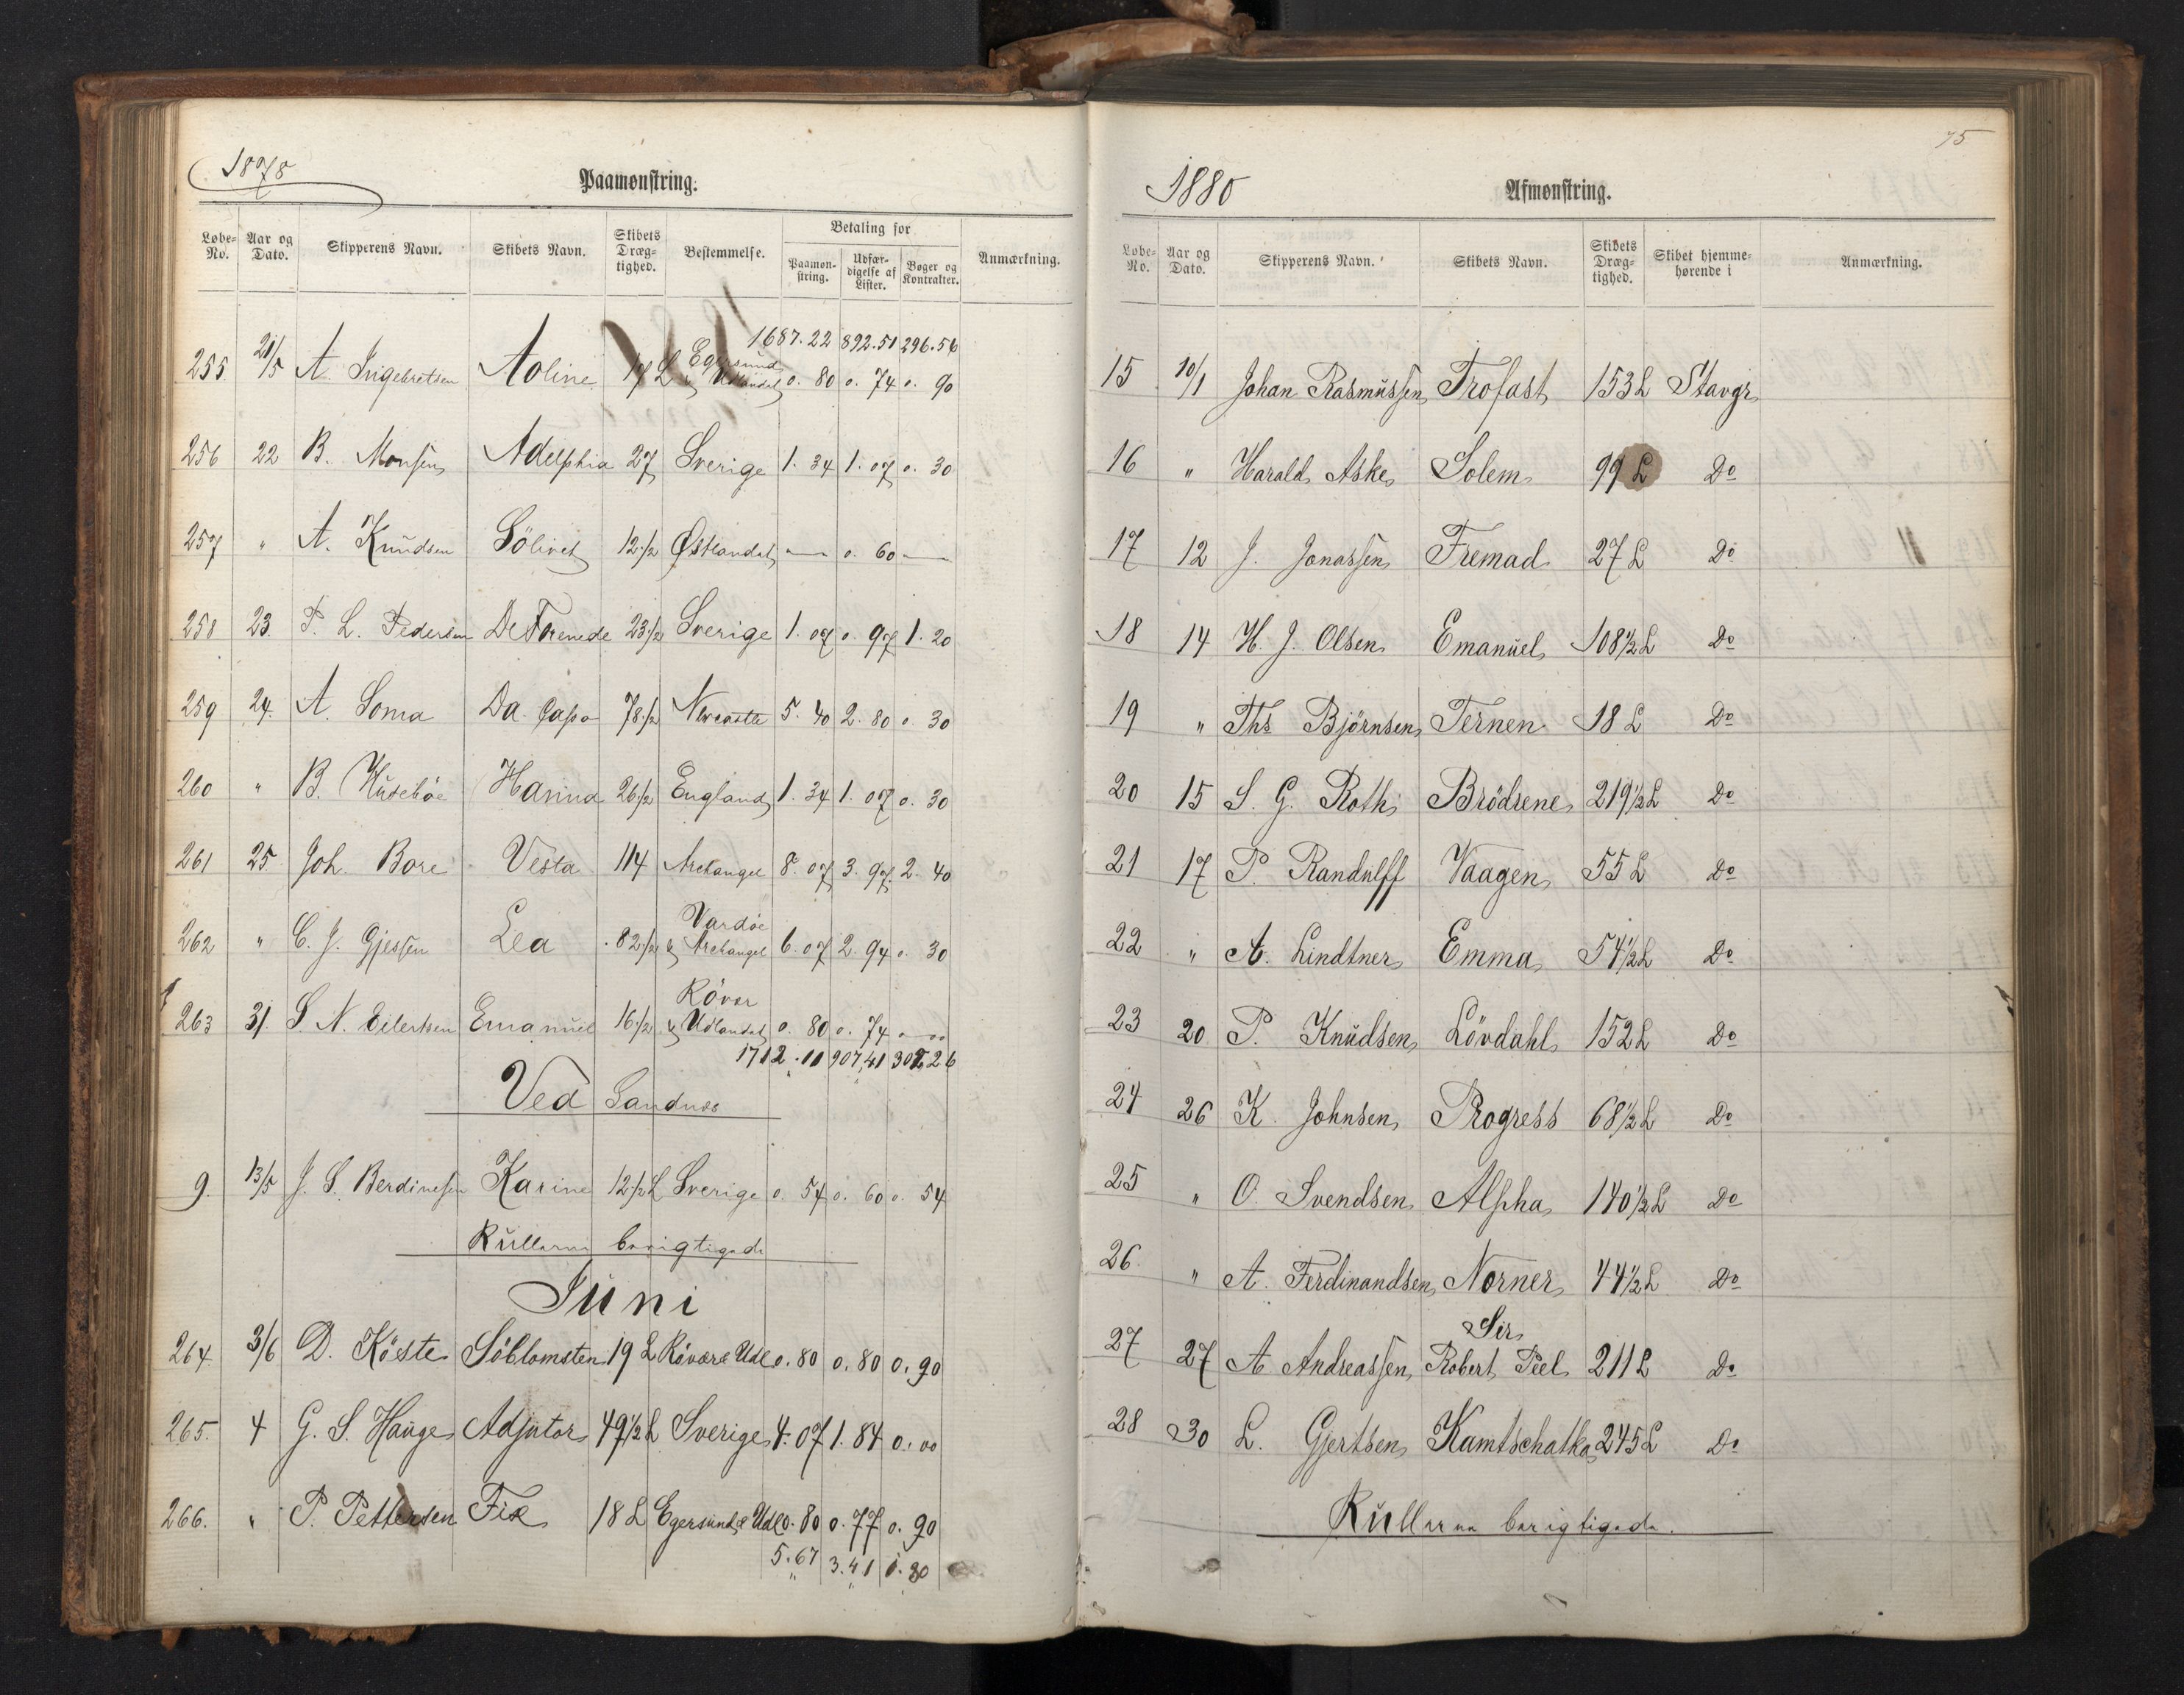 1878
Paamønstring.
Løbe-No. Aar og Dato. Skipperens Navn. Skibets Navn. Skibets Dræg-tighed. Bestemmelse. Betaling for Paamøn-string. Udfær-digelse af Lister. Bøger og Kontrakter. Anmærkning.
1687.22 892.51 296.56
255. 21/5 A. Ingebretsen Aoline 17 L Egersund & Udlandet 0. 80 0. 74 0. 90
256 22 B. Monsen Adelphia 27 Sverige 1. 34 1. 07 0. 30
257 " A. Knudsen Sölivet 12 1/2 Østlandet — 0. 60 —
258 23. P. L. Pedersen De Forenede 23 1/2 Sverige 1. 07 0. 97 1. 20
259 24. A. Soma Da Capo 78 1/2 Newcastle 5. 40 2. 80 0. 30
260 " B. Husebøe Hanna 26 1/2 England 1. 34 1. 07 0. 30
261 25. Joh. Bore Vesta 114 Archangel 8. 07 3. 97. 2. 40
262 " C. J. Gjessen Lea 82 1/2 Vardöe & Archangel 6. 07 2. 94 0. 30
263 31. S. N. Eilertsen Emanuel 16 1/2 Rövær & Udlandet 0. 80 0. 74 —
1712.11 907,41 302,26
Ved Sandnes
9. 13/5 J. S. Berdinesen Karine 12 1/2 L Sverige 0. 54 0. 60 0. 54
Rullerne berigtigede
Juni
264. 3/6 D. Köste Söblomsten 19 L Rövære Udl 0. 80 0. 80 0. 90
265. 4 G. S. Hauge Adjutor 49 1/2 L Sverige 4. 07 1. 84 0. 00
266. " P. Pettersen Fix 18 L Egersund & Udl 0. 80 0. 77 0. 90
5.67 3.41 1.80
75
1880
Afmønstring.
Løbe-No. Aar og Dato. Skipperens Navn. Skibets Navn. Skibets Dræg-tighed. Skibet hjemme-hørende i Anmærkning.
15 10/1 Johan Rasmussen Trofast 153 L Stavgr
16 " Harald Aske Solem 99 L Do
17 12 J. Jonassen Fremad 27 L Do
18 14 H. J. Olsen Emanuel 108 1/2 L Do
19 " Ths Björnsen Ternen 18 L Do
20 15 S. G. Roth Brödrene 219 1/2 L Do
21 17 P. Randulff Vaagen 55 L Do
22 " A. Lindtner Emma 54 1/2 L Do
23 20 P. Knudsen Lövdahl 152 L Do
24 26 K. Johnsen Progress 68 1/2 L Do
25 " O. Svendsen Alpha 140 1/2 L Do
26. " A. Ferdinandsen Norner 44 1/2 L Do
27 27 A. Andreassen Sir Robert Peel 211 L Do
28 30 L. Gjertsen Kamtschatka 245 L Do
Rullerne berigtigede.